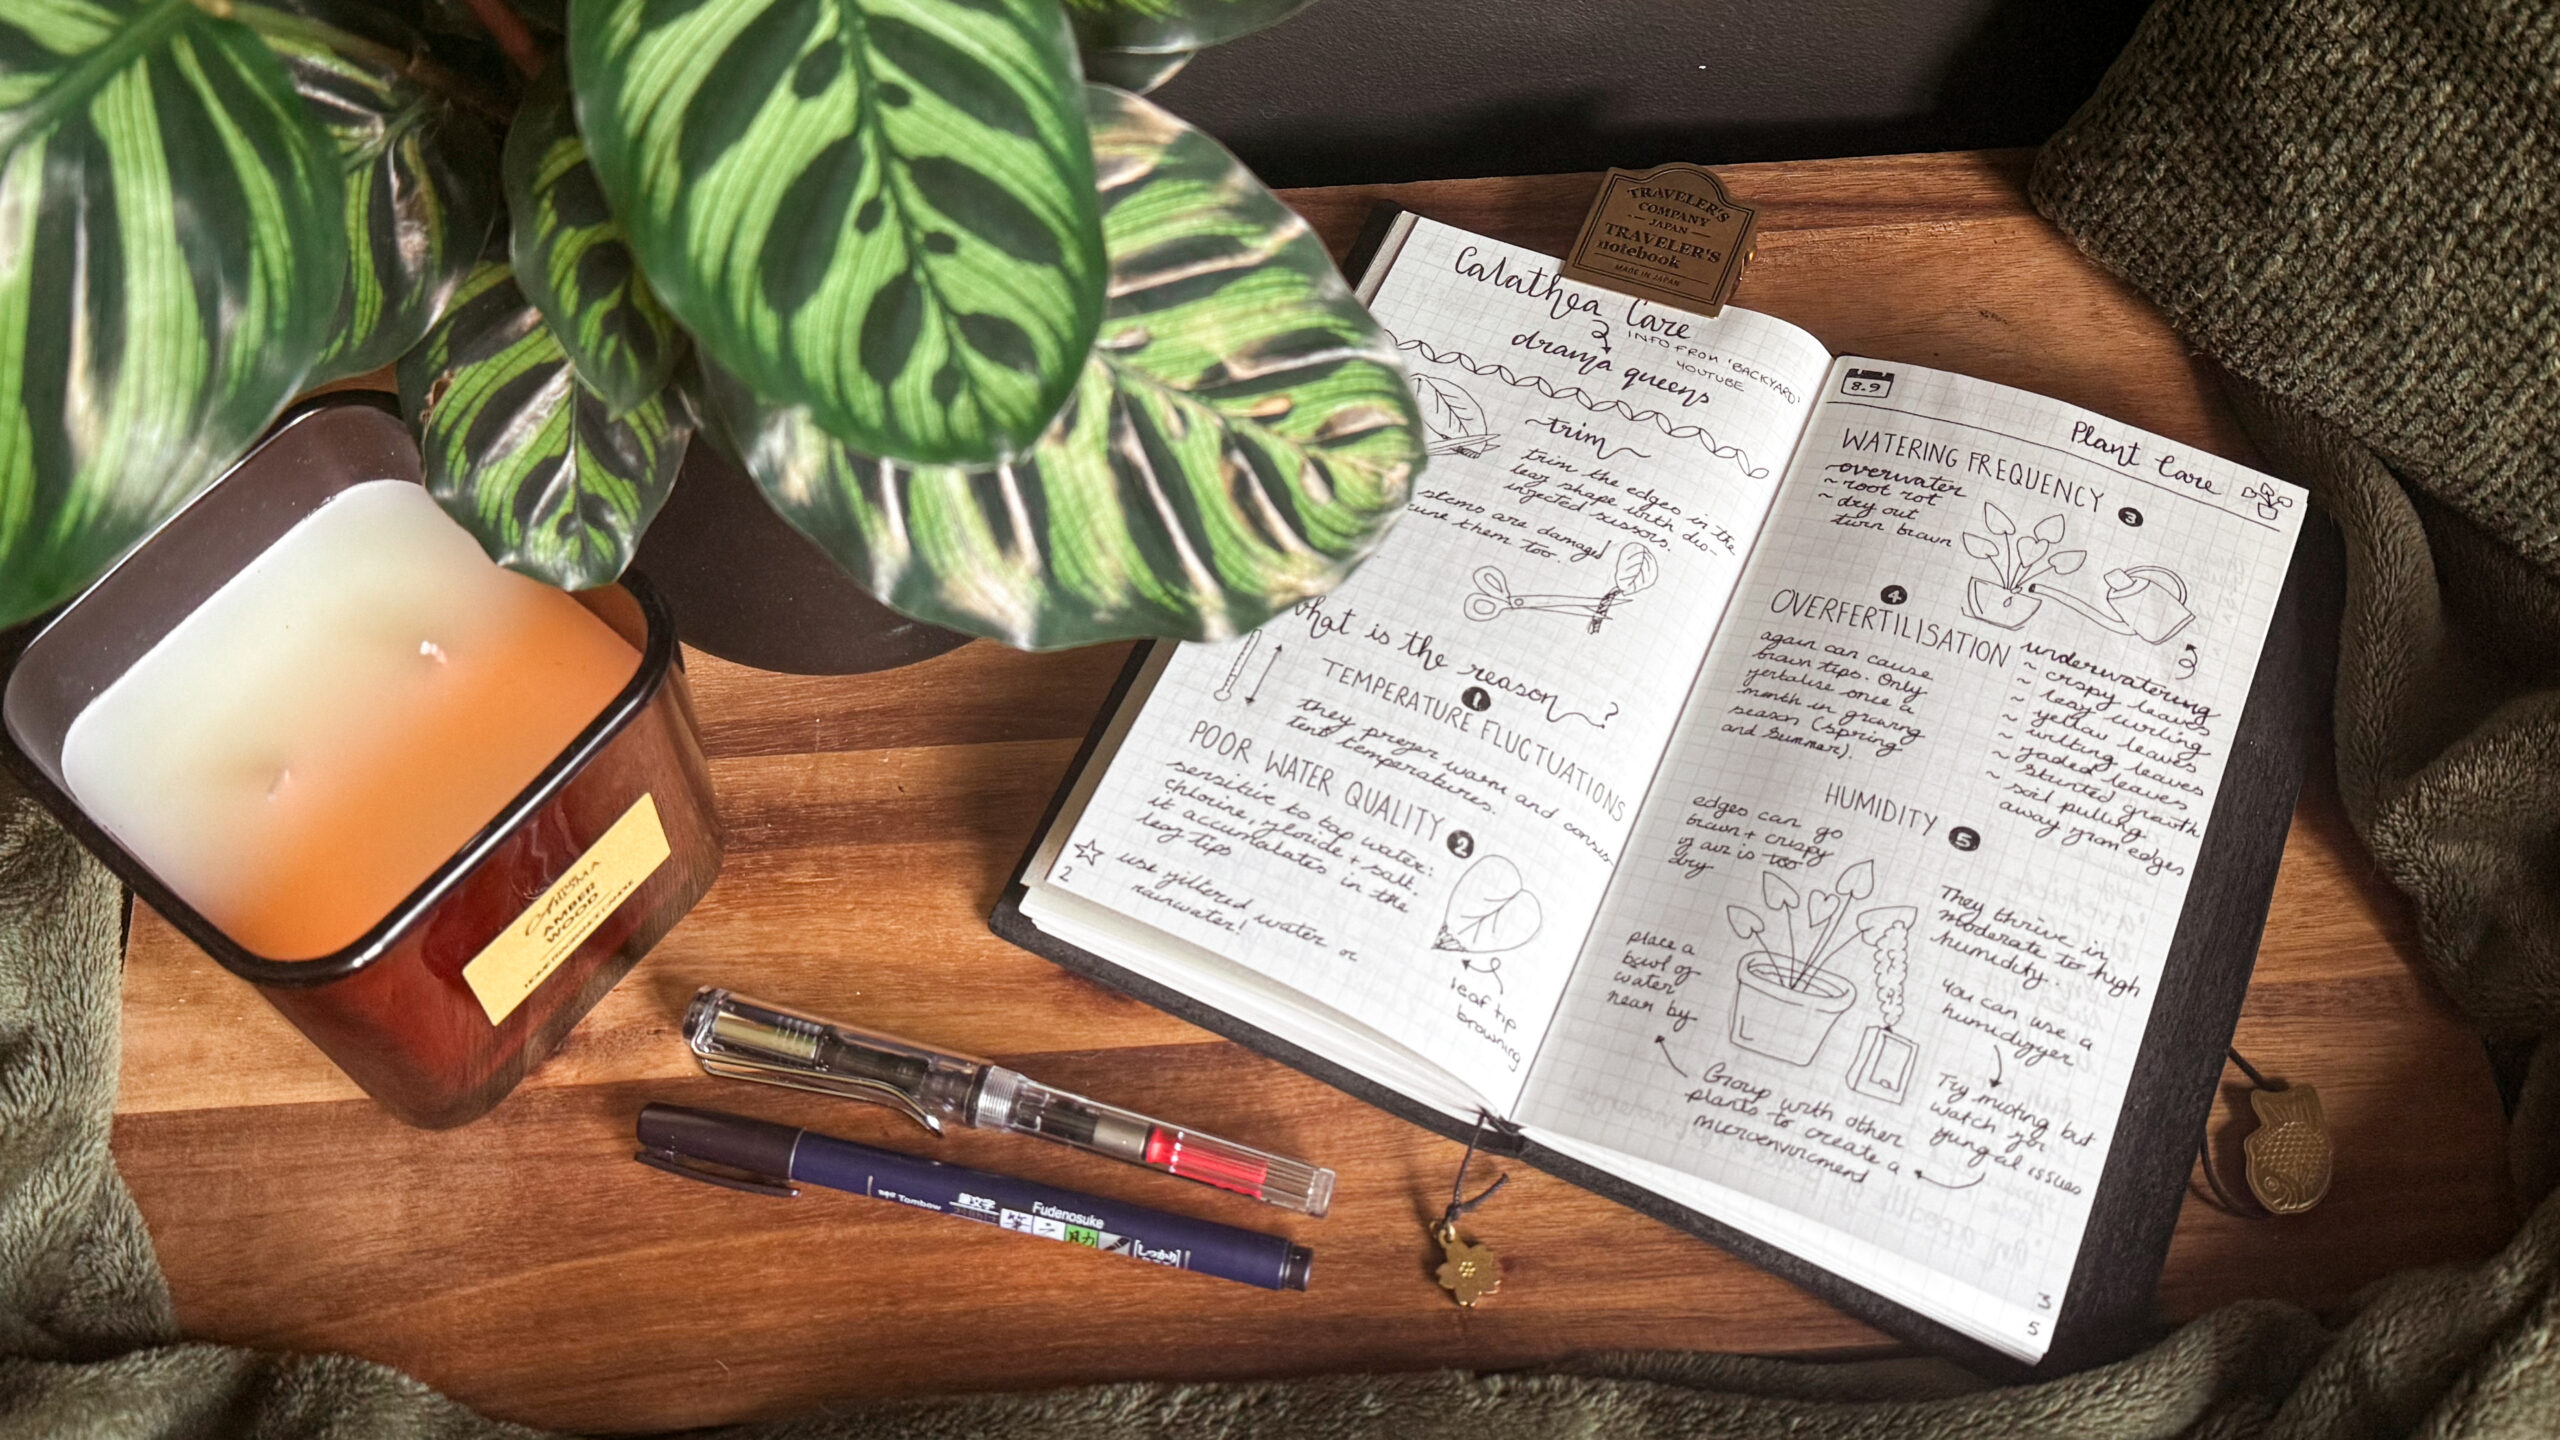 TRAVELER'S
COMPANY
JAPAN
TRAVELER'S
notebook
MADE IN JAPAN
Calathea Care
INFO FROM 'BACKYARD'
YOUTUBE
drama queens
~trim~
trim the edges in the
leaf shape with dis-
injected sissors.
stems are damaged
them too.
what is the reason?
1
TEMPERATURE FLUCTUATIONS
they prefer warm and consis
tent temperatures.
POOR WATER QUALITY 2
sensitive to tap water:
chlorine, floride + salt.
it accumalates in the
leaf tips
use filtered water or
rainwater!
leaf tip
browning
2
8.9
Plant Care
WATERING FREQUENCY 3
~overwater
~ root rot
~ dry out
turn brown
4
OVERFERTILISATION
again can cause
brown tips. Only
fertalise once a
month in growing
season (spring
and summer).
underwatering
~ crispy leaves
~ leaf curling
~ yellow leaves
~ wilting leaves
~ faded leaves
~ stunted growth
~ soil pulling
away from edges
HUMIDITY 5
edges can go
brown + crispy
if air is too
dry
They thrive in
moderate to high
humidity.
You can use a
humidifyer
place a
bowl of
water
near by
Group with other
plants to create a
microenvircment
Try misting but
watch for
fungal issues
3
5
AMBER
WOOD
Tombow
筆文字
Fudenosuke
しっかり